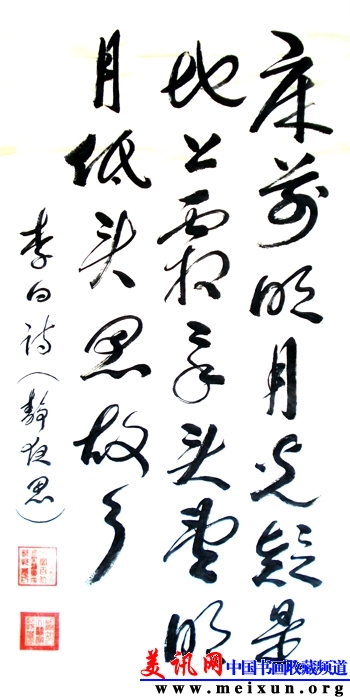 床前明月光疑是
地上霜举头望明
月低头思故乡
李白诗（静夜思）
美讯网 中国书画收藏频道
www.meixun.org